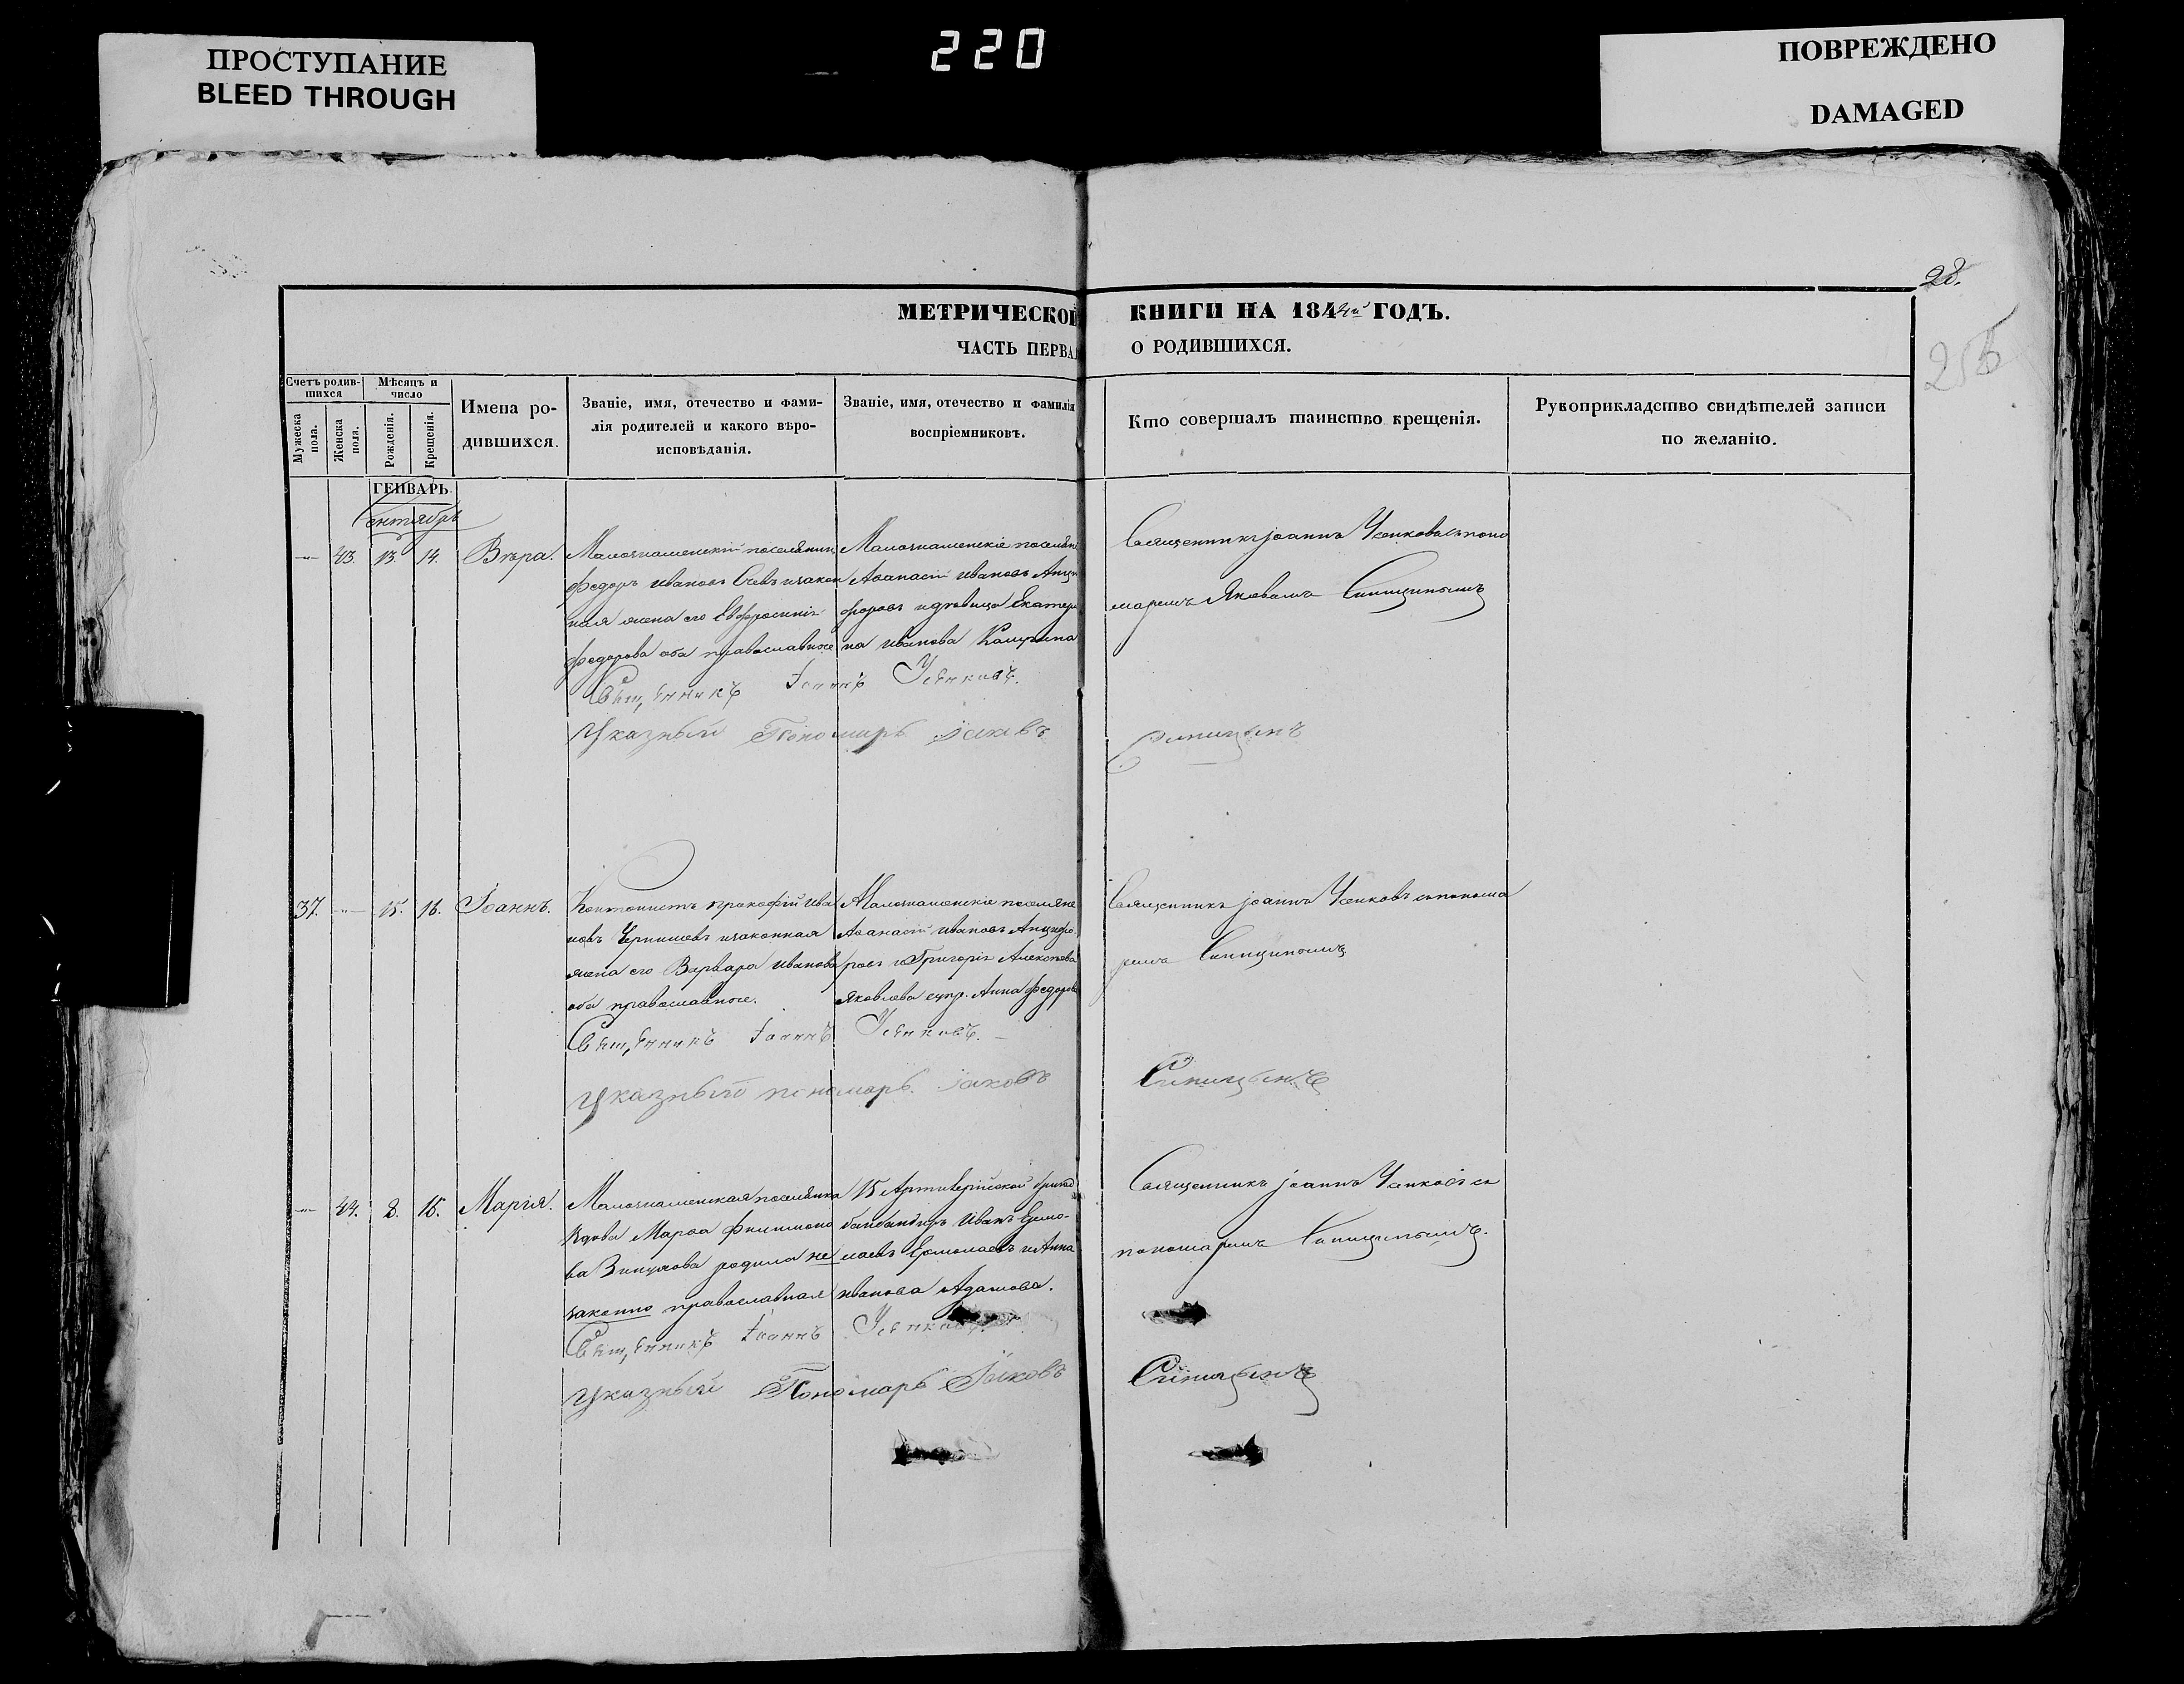 ПРОСТУПАНИЕ
BLEED THROUGH
220
ПОВРЕЖДЕНО
DAMAGED
28.
МЕТРИЧЕСКОЙ КНИГИ НА 1844й ГОДЪ.
ЧАСТЬ ПЕРВАЯ О РОДИВШИХСЯ.
Счетъ родившихся
Мужеска пола.
Женска пола.
Мѣсяцъ и число
Рожденія.
Крещенія.
Имена родившихся.
Званіе, имя, отечество и фамилія родителей и какого вѣроисповѣданія.
Званіе, имя, отечество и фамилія воспріемниковъ.
Кто совершалъ таинство крещенія.
Рукоприкладство свидѣтелей записи по желанію.
ГЕНВАРЬ
Сентябрь
43. 13. 14. Вѣра.
Малознаменскій поселянин
Федоръ Ивановъ законная жена его Евфросинія
Федорова оба православные
Малознаменскіе поселяне
Аѳанасій Ивановъ Анциферовъ и дѣвица Екатерина Иванова
Священникъ Іоаннъ Усенковъ съ пономаремъ Яковомъ Синицинымъ
Священникъ Іоаннъ Усенковъ.
Указный Пономарь Іаковъ Синицынъ
37. 15. 16. Іоаннъ.
Кантонистъ Прокофій Ивановъ Чернышевъ и законная
жена его Варвара Иванова
оба православные.
Малознаменскіе поселяне
Аѳанасій Ивановъ Анциферовъ и Григорія Алексѣева
Яковлева супр. Анна Федорова
Священникъ Іоаннъ Усенковъ съ пономаремъ Синицинымъ
Священникъ Іоаннъ Усенковъ.
Указный пономарь Іаковъ Синицынъ
44. 8. 15. Марія.
Малознаменская поселянка
вдова Марѳа Филимонова родила незаконно православная
15 Артилерійской бригады
Иванъ Ермолаевъ Ермолаевъ и Анна
Иванова Адамова.
Священникъ Іоаннъ Усенковъ съ
пономаремъ Синицинымъ.
Священникъ Іоаннъ Усенковъ
Указный Пономарь Іаковъ Синицынъ